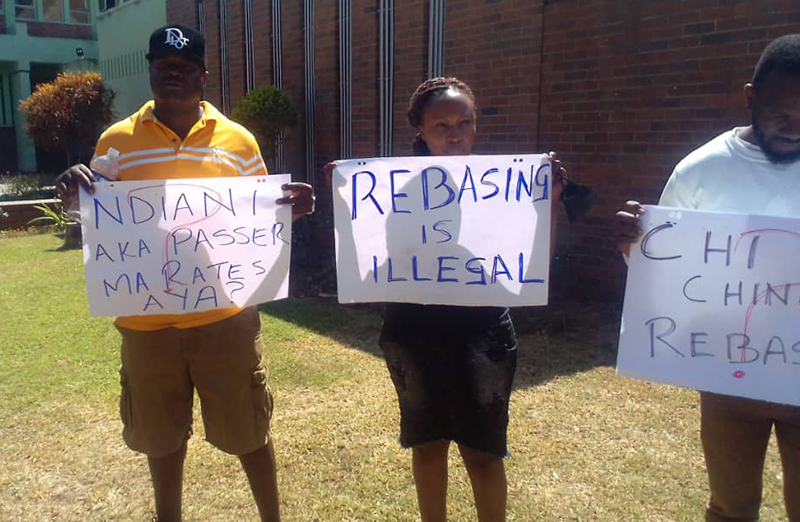 Dior
NDIANI
AKA PASSER
MA RATES
AYA?
REBASING
IS
ILLEGAL
CHI
CHIN
REBAS